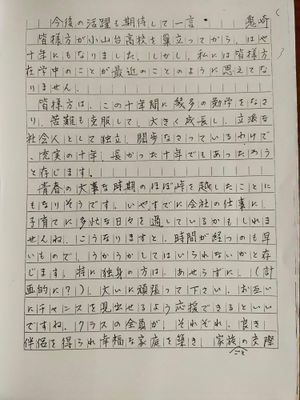 今後の活躍を期待して一言 亀崎
皆様方が小山台高校を巣立ってから、はや
十年にもなりました。しかし、私には皆様方
在学中のことが最近のことのように思えてな
りません。
皆様方は、この十年間に幾多の勉学をなさ
り、苦難も克服して、大きく成長し、立派な
社会人として独立、闊歩なさっているわけで
、充実の十年、長かった十年でもあったろう
と存じます。
青春の大事な時期のほぼ峠を越したことに
もなりそうです。いやすでに会社の仕事に、
子育てに多忙な日々を過しているかもしれま
せんね。こうなりますと、時間が経つのも早
いもので、うかうかしてはいられないかと存
じます。特に独身の方は、あせらずに、(計
画的に?)、大いに頑張って下さい。お互い
にチャンスを見出せるよう応援できるといい
ですね。クラスの全員が、それぞれ、良き
伴侶を得られ幸福な家庭を築き、家族の交際